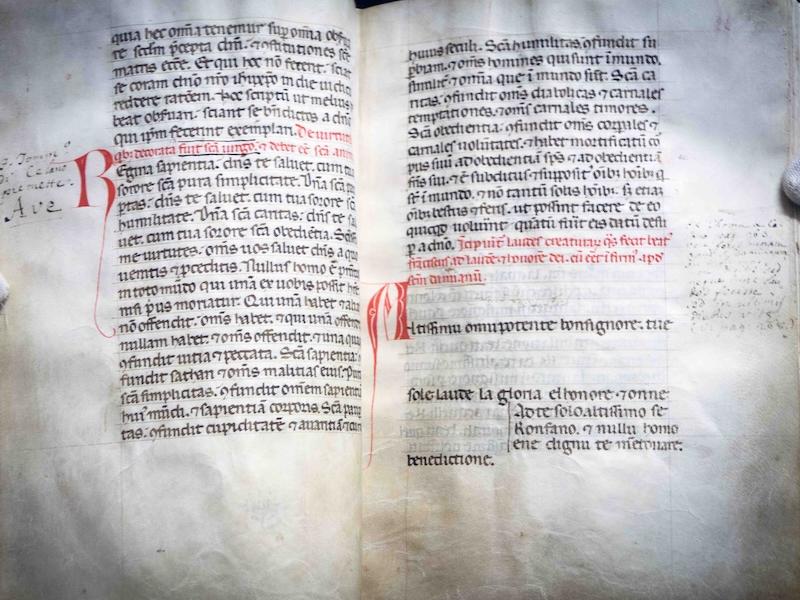 quia hec om̄ia tenemur sup̱ om̄ia obſꝯua
re scd̄m p̄cepta dn̄i. ⁊ ꝯſtitutiones sc̄e
matris ecc̄e. Et qui hoc nō fecerit. sciat
se coram dn̄o nr̄o ih̄u xp̄o in die iudicii
reddere ratōem. Hoc scriptū ut melius
beat obſuari. sciant se bn̄dictos a dn̄o
qui ip̄m fecerint exemplari. De virtutib
quibꝫ decorata fuit scā uirgo. ⁊ debet eē scā anima
Regina sapientia. dn̄s te saluet. cum tua
sorore sc̄a pura simplicitate. Dn̄a sc̄a pau
ptas. dn̄s te saluet. cum tua sorore sc̄a
humilitate. Dn̄a sc̄a caritas. dn̄s te sal
uet. cum tua sorore sc̄a obediētia. Sc̄issi
me uirtutes. om̄s uos saluet dn̄s a quo
uenitis ⁊ p̄ceditis. Nullus homo ē p̄nitus
in toto mūdo qui unā ex uobis possit habere
nisi p̄us moriatur. Qui unā habet ⁊ alias
nō offendit. om̄s habet. ⁊ qui unā offendit
nullam habet. ⁊ om̄s offendit. ⁊ una queqꝫ
ꝯfundit uitia ⁊ peccata. Sc̄a sapientia.
fundit sathan ⁊ om̄s malitias eius. Pura
sc̄a simplicitas. ꝯfundit om̄em sapientiā
huiꝰ mūdi. ⁊ sapientiā corporis. Sc̄a pauꝑ
tas. ꝯfundit cupiditatē ⁊ auaritiā ⁊ curas
Tomme
Celano
premette
Ave
huius seculi. Sc̄a humilitas ꝯfundit su
pbiam. ⁊ om̄s homines qui sunt ī mundo.
similiter ⁊ om̄ia que ī mundo sūt. Sc̄a ca
ritas. ꝯfundit om̄s diabolicas ⁊ carnales
temptationes. ⁊ om̄s carnales timores.
Sc̄a obedientia. ꝯfundit om̄s corpales ⁊
carnales uoluntates. ⁊ habet mortificatū cor
pus suū ad obedientiā sp̄s ⁊ ad obedientiā
fr̄is sui. ⁊ ē subditus ⁊ suppositꝰ oībꝫ hoībꝫ q̄
sūt ī mundo. ⁊ nō tantū solis hoībꝫ. sꝫ etiaꝫ
oībꝫ bestiis ⁊ feris. ut possint facere de eo
quicqd uoluint quātū fuit eis datū desu
p a dn̄o. Incipiūt laudes creaturaꝝ q̄s fecit beatꝰ
franciscꝰ ad laudē ⁊ honorē dei. cū eēt īfirmꝰ apud
scm̄ damianū.
Altissimu onnipotente bonsignore. tue
sole laude la gloria elhonore ⁊ onne
Ad te solo altissimo se
Konfano. ⁊ nullu homo
ene dignu te mētouare.
benedictione.